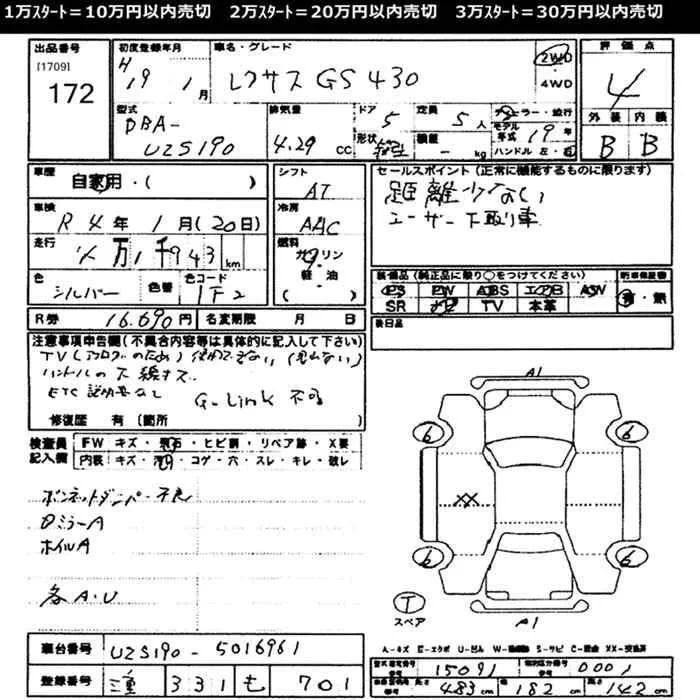 1万ｽﾀｰﾄ＝10万円以内売切　2万ｽﾀｰﾄ＝20万円以内売切　3万ｽﾀｰﾄ＝30万円以内売切
出品番号
[1709]
172
初度登録年月
H 19 1月
車名・グレード
レクサス GS 430
2WD
・
4WD
評価点
4
外装 内装
B B
型式
DBA-
UZS190
排気量
4.29 CC
ドア
5
形状
定員
5人
積載
- kg
ディーラー・並行
モデル年式 19年
ハンドル 左・右
車歴
自家用・( )
車検
R 4年 1月(20日)
走行
万1千943km
色
シルバー
色替
色コード
1F2
シフト
AT
冷房
AAC
燃料
ガソリン
・
軽・油
( )
セールスポイント (正常に機能するものに限ります)
距離少なく
ユーザー下取り車
装備品(純正品に限り○をつけてください)
PS PW ABS エアB ASW
SR ナビ TV 本革
新車保証書
有・無
後日品
R券 16.690円
名変期限 月 日
注意事項申告欄(不具合内容等は具体的に記入して下さい)
TV(アナログのため)使用できない(見れない)
ハンドルの下
ETC 説明書なし
G-Link 不可
修復歴 有(箇所 )
検査員記入欄
FW キズ・飛石・ヒビ割・リペア跡・X要
内装 キズ・汚れ・コゲ・穴・スレ・キレ・破レ
ボンネットダンパー不良
Dミラー A
ホイル A
各 A・U
A1
6 6
XX
6 6
T
スペア
A1
A-キズ E-エクボ U-凹ミ S-サビ C-腐蝕 XX-交換済
車台番号
UZS190-5016961
登録番号
三重 331 も 701
型式指定番号
15091
類別区分番号
0001
長さ 483cm
巾 182cm
高さ 142cm